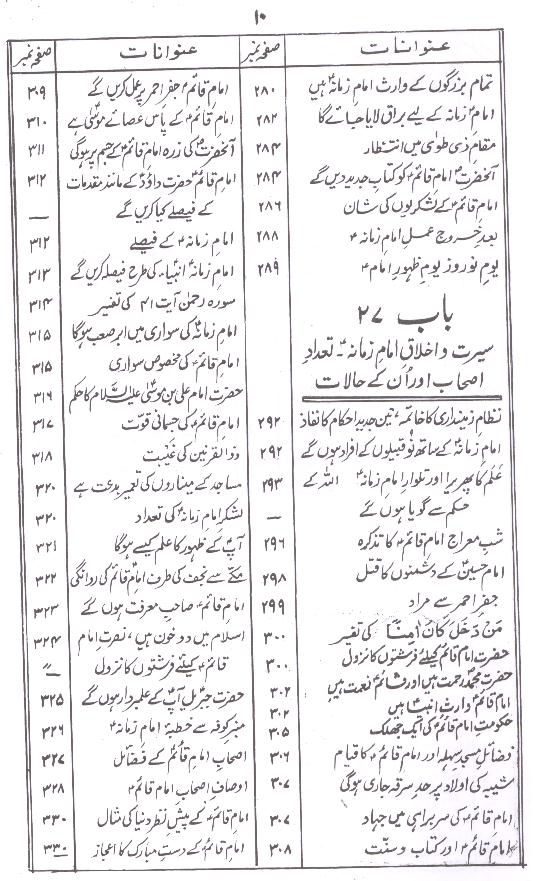 ۱۰
عنوانات صفحہ نمبر
تمام بزرگوں کے وارث امام زمانہؑ ہیں ۲۸۰
امامؑ زمانہ کے لیے براق لایا جائے گا ۲۸۲
مقام ذی طویٰ میں انتظار ۲۸۴
آنحضرتؐ امام قائمؑ کو کتاب جدید دیں گے ۲۸۴
امام قائمؑ کے لشکریوں کی شان ۲۸۶
بعد خروج عملِ امام زمانہؑ ۲۸۸
یومِ نوروز یومِ ظہورِ امامؑ ۲۸۹
باب ۲۷
سیرت و اخلاقِ امام زمانہؑ - تعدادِ
اصحاب اور اُن کے حالات
نظام زمینداری کا خاتمہ، تین جدید احکام کا نفاذ ۲۹۲
امام زمانہؑ کے ساتھ نو قبیلوں کے افراد ہوں گے ۲۹۲
عَلَم کا پھریرا اور تلوار امام زمانہؑ اللہ کے ۲۹۳
حکم سے گویا ہوں گے —
شبِ معراج امام قائمؑ کا تذکرہ ۲۹۶
امام حسینؑ کے دشمنوں کا قتل ۲۹۸
جفرِ احمر سے مراد ۲۹۹
مَنْ دَخَلَ كَانَ اٰمِنًا کی تفسیر ۳۰۰
حضرت امام قائمؑ کیلئے فرشتوں کا نزول ۳۰۰
حضرت محمدؐ رحمت ہیں اور قائمؑ نقمت ہیں ۳۰۲
امام قائمؑ وارثِ انبیاءؑ ہیں ۳۰۲
حکومتِ امام قائمؑ کی ایک جھلک ۳۰۵
فضائل مسجد سہلہ اور امام قائمؑ کا قیام ۳۰۶
شیبہ کی اولاد پر حدِ سرقہ جاری ہوگی ۳۰۷
امام قائمؑ کی سربراہی میں جہاد ۳۰۷
امام قائمؑ اور کتاب و سنّت ۳۰۸
عنوانات صفحہ نمبر
امام قائمؑ جفرِ احمر پر عمل کریں گے ۳۰۹
امام قائمؑ کے پاس عصائے موسٰیؑ ہے ۳۱۰
آنحضرتؐ کی زرہ امام قائمؑ کے جسم پر ہوگی ۳۱۱
امام قائمؑ حضرت داؤدؑ کے مانند مقدمات ۳۱۲
کے فیصلے کیا کریں گے —
امام زمانہؑ کے فیصلے ۳۱۲
امام زمانہؑ انبیاءؑ کی طرح فیصلہ کریں گے ۳۱۳
سورہ رحمٰن آیت ۴۱ کی تفسیر ۳۱۴
امام زمانہؑ کی سواری میں ابرِ صعب ہوگا ۳۱۵
امام قائمؑ کی مخصوص سواری ۳۱۵
حضرت امام علی بن موسیٰؑ علیہ السلام کا حکم ۳۱۶
امام قائمؑ کی جسمانی قوّت ۳۱۷
ذوالقرنین کی غَیبت ۳۱۸
مساجد کے میناروں کی تعمیر بدعت ہے ۳۲۰
لشکر امام زمانہؑ کی تعداد ۳۲۰
آپؑ کے ظہور کا علم کیسے ہوگا ۳۲۱
مکّے سے نجف کی طرف امام قائمؑ کی روانگی ۳۲۲
امام قائمؑ صاحبِ معرفت ہوں گے ۳۲۳
اسلام میں دو خون ہیں، نصرتِ امام ۳۲۴
قائمؑ کیلئے فرشتوں کا نزول ״
حضرت جبریلؑ آپؑ کے علمبردار ہوں گے ۳۲۵
منبرِ کوفہ سے خطبۂ امام زمانہؑ ۳۲۶
اصحابِ امام قائمؑ کے فضائل ۳۲۷
اوصافِ اصحابِ امام قائمؑ ۳۲۸
امام قائمؑ کے پیشِ نظر دنیا کی مثال ۳۳۰
امام قائمؑ کے دستِ مبارک کا اعجاز ۳۳۰